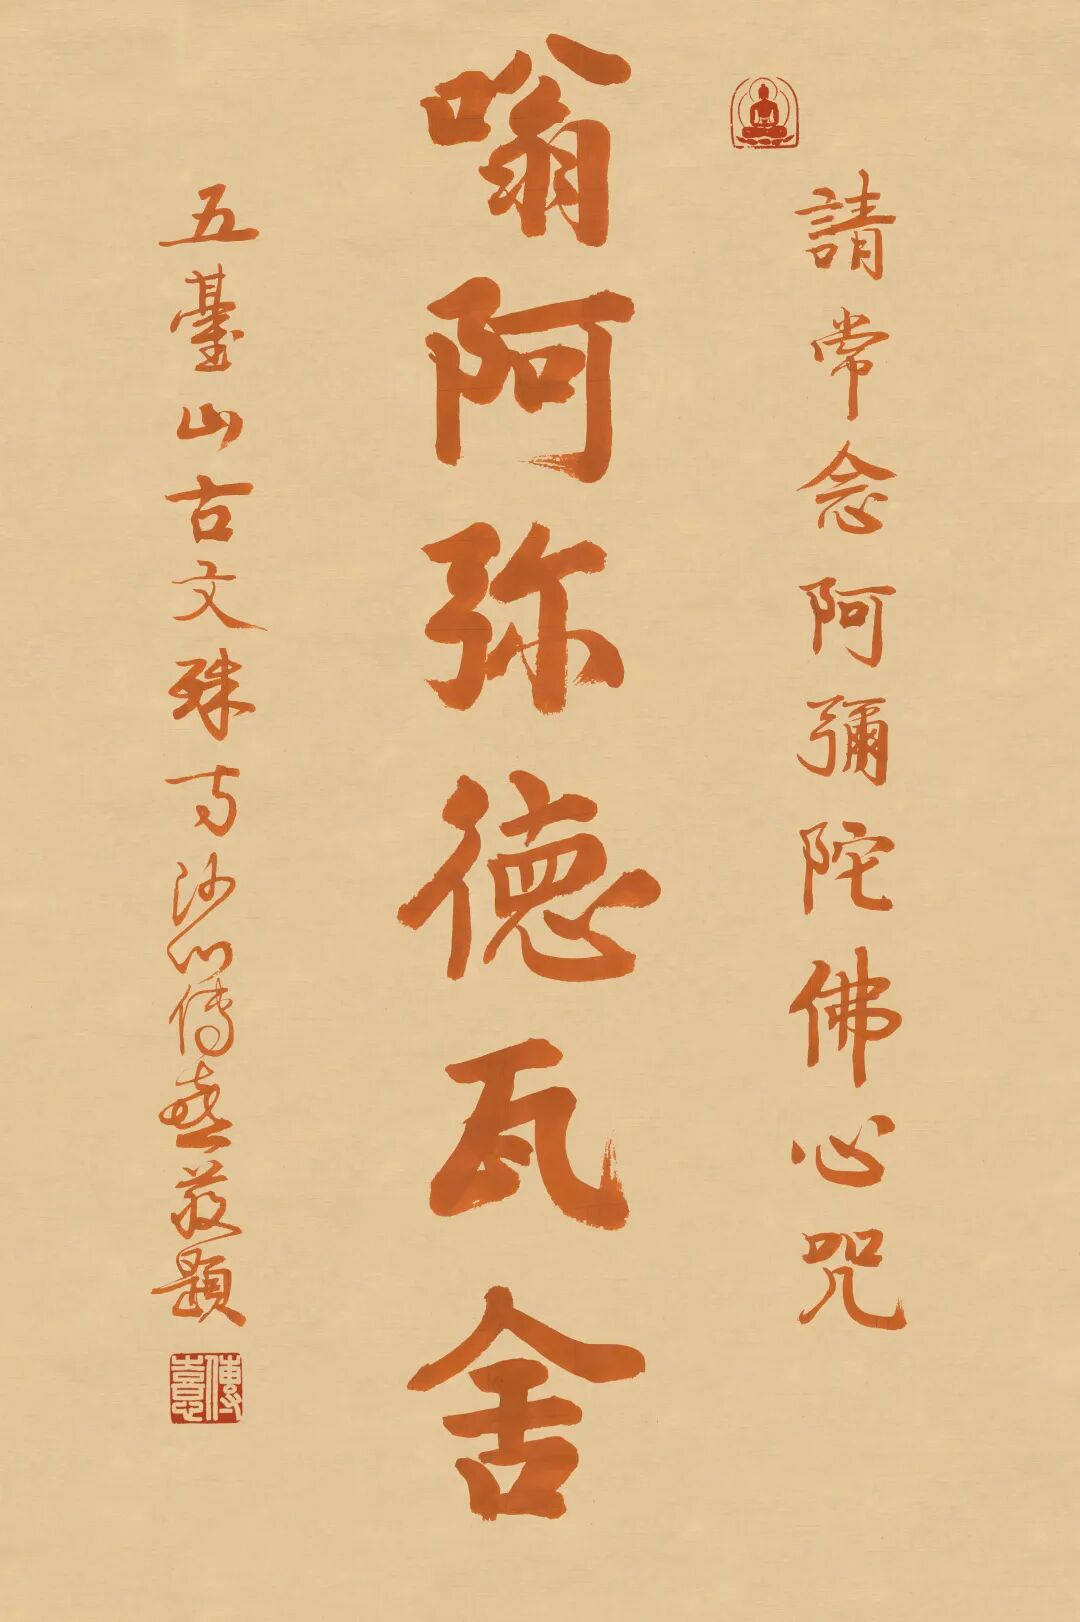 請常念阿彌陀佛心咒
嗡阿弥德瓦舍
五臺山古文殊寺沙門傳意敬題
傳意